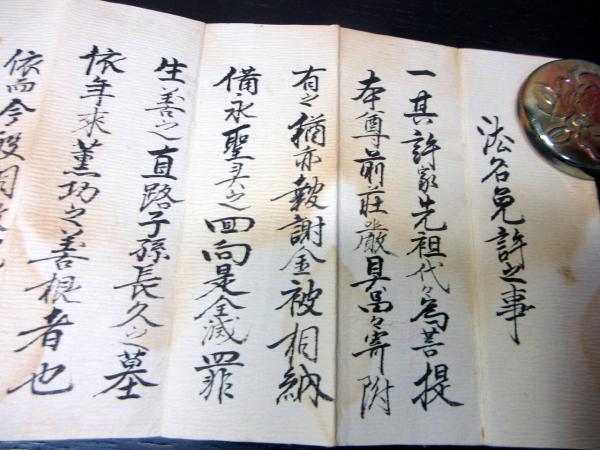 法名免許之事
一其許家先祖代々為菩提
本尊前荘厳具品々寄附
有之猶亦報謝金被相納
備永聖具之回向是全滅罪
生善之直路子孫長久之基
依年来薫功之善根者也
依而今般